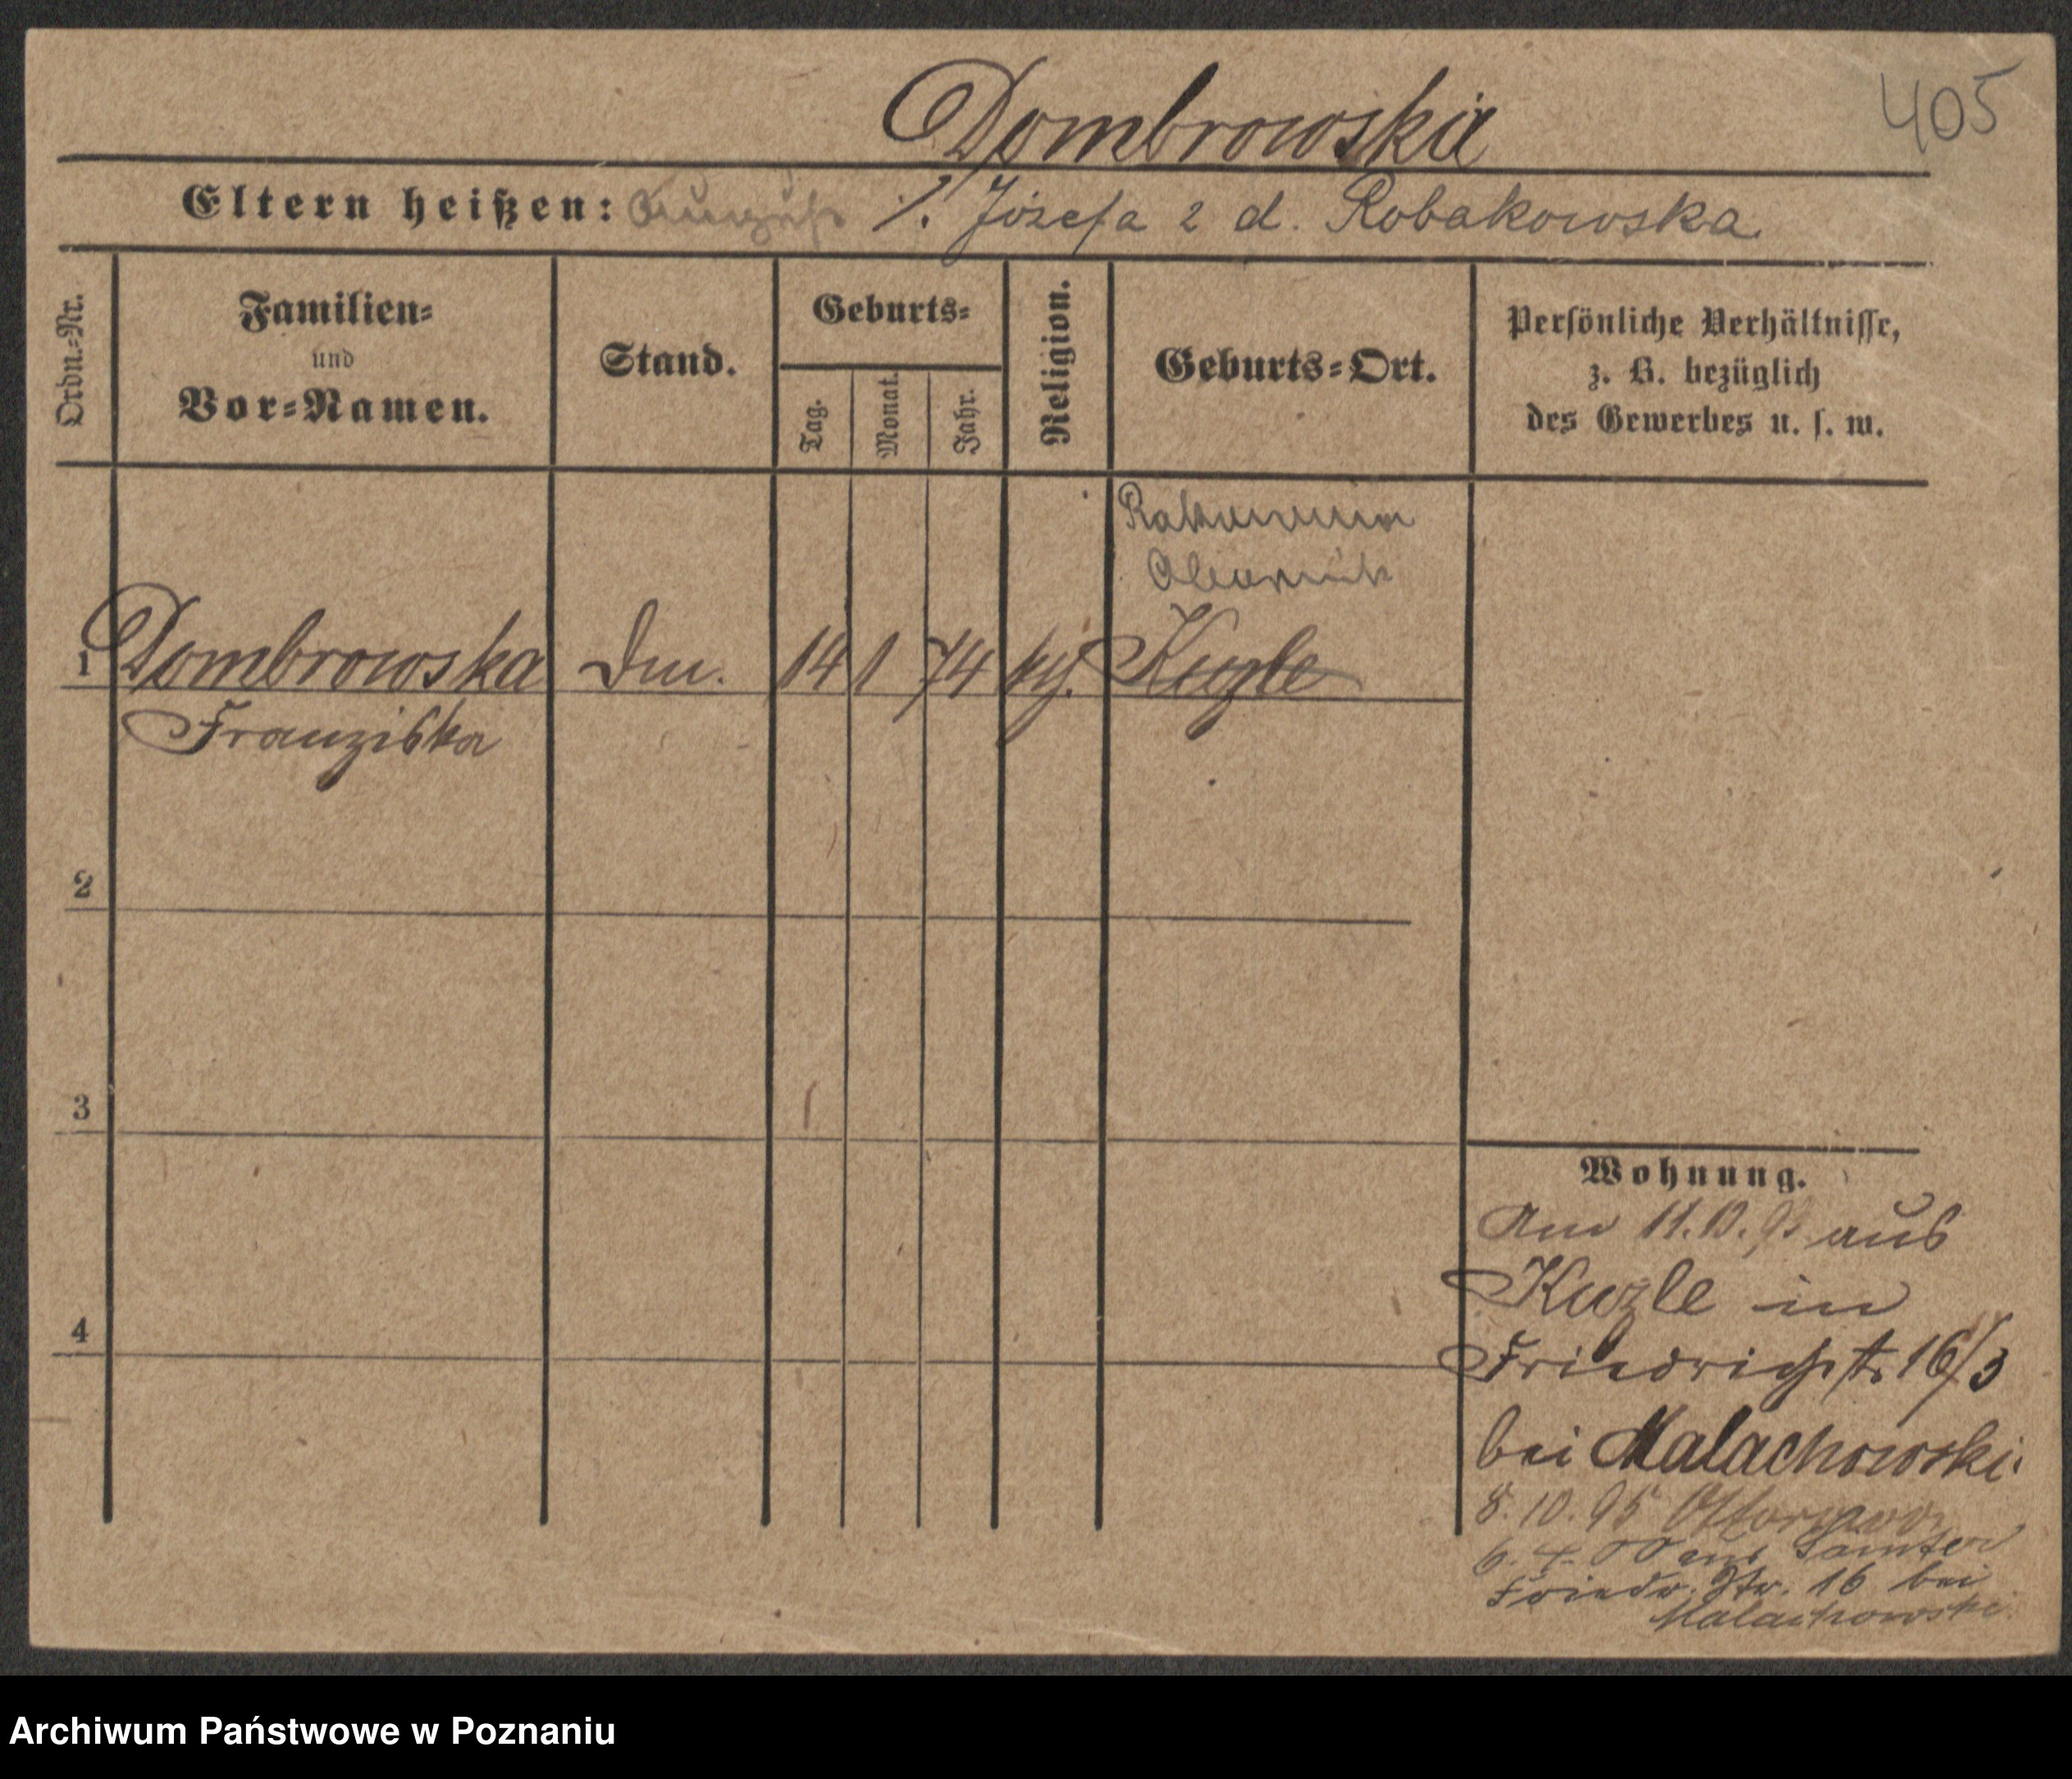 405
Dombrowska
Eltern heißen: August ·/. Józefa 2 d. Robakowska
Ordn.-Nr.
Familien- und Vor-Namen.
Stand.
Geburts-
Tag.
Monat.
Jahr.
Religion.
Geburts-Ort.
Persönliche Verhältnisse,
z. B. bezüglich
des Gewerbes u. s. w.
Obornik
1 Dombrowska 14 1 74 Kuzle
Franziska
2
3
4
Wohnung.
Am 11.10. aus
Kuzle in
Friedrichstr. 16/3
bei Malachowski.
8. 10. 95
6. 4. 00 aus Samter
Friedr. Str. 16 bei
Malachowski.
Archiwum Państwowe w Poznaniu